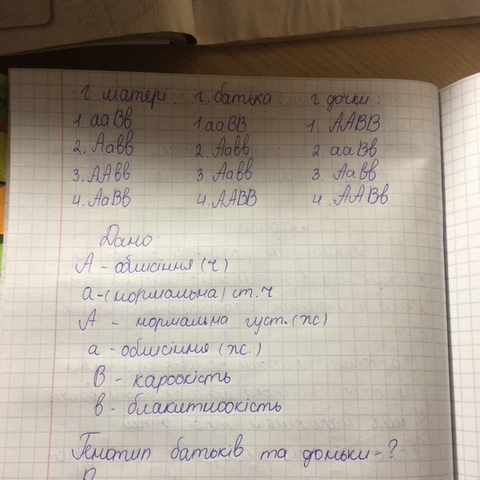 г. матері. г. батька г дочки
1. ааВв 1. ааВВ 1. ААВВ
2. Аавв 2. Аавв 2 ааВв
3. ААвв 3. Аавв 3. Аавв
4. АаВв 4. ААВВ 4. ААВв
Дано:
А - облисіння (ч)
а - (нормальна) ст. ч
А - нормальна густ. (жс)
а - облисіння (жс)
В - кароокість
в - блакитноокість
Генотип батьків та доньки - ?